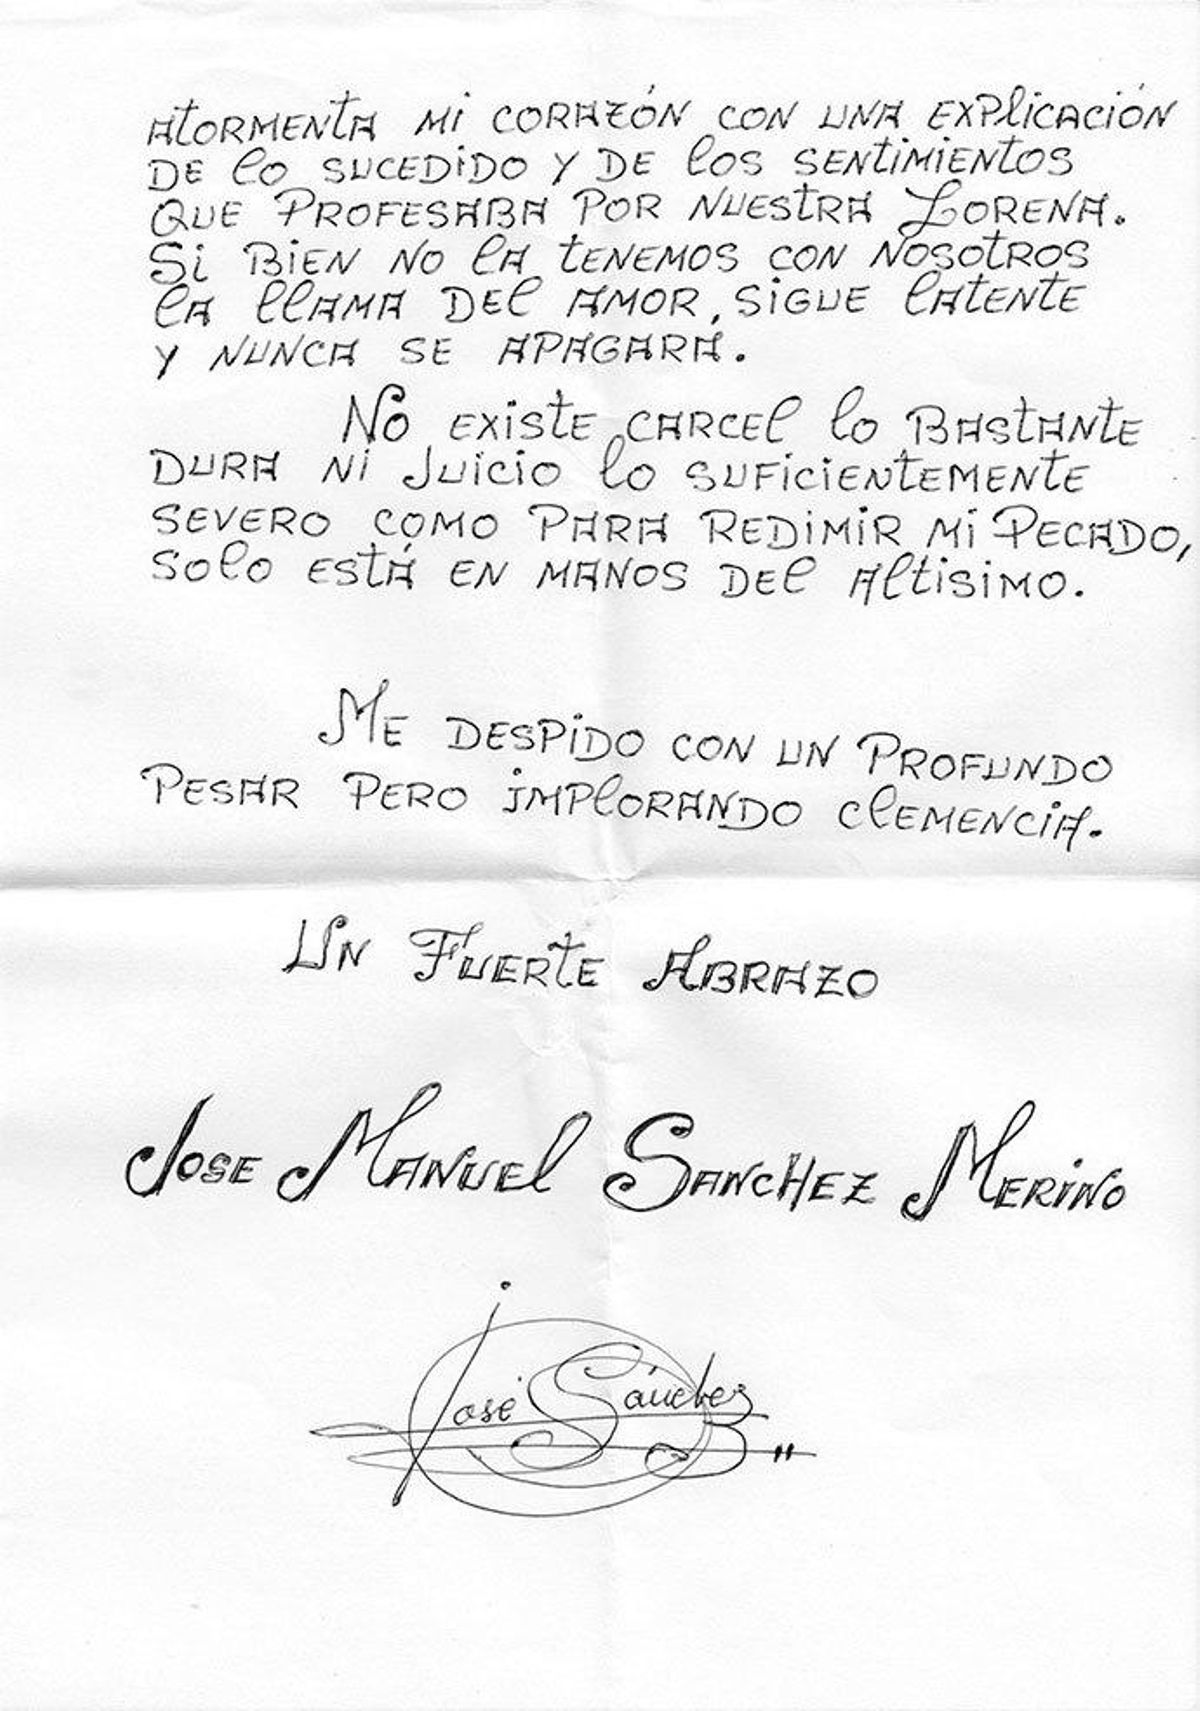 ATORMENTA MI CORAZÓN CON UNA EXPLICACIÓN
DE LO SUCEDIDO Y DE LOS SENTIMIENTOS
QUE PROFESABA POR NUESTRA LORENA.
SI BIEN NO LA TENEMOS CON NOSOTROS
LA LLAMA DEL AMOR, SIGUE LATENTE
Y NUNCA SE APAGARA.
NO EXISTE CARCEL LO BASTANTE
DURA NI JUICIO LO SUFICIENTEMENTE
SEVERO COMO PARA REDIMIR MI PECADO,
SOLO ESTÁ EN MANOS DEL ALTISIMO.
ME DESPIDO CON UN PROFUNDO
PESAR PERO IMPLORANDO CLEMENCIA.
UN FUERTE ABRAZO
JOSE MANUEL SANCHEZ MERINO
José Sánchez